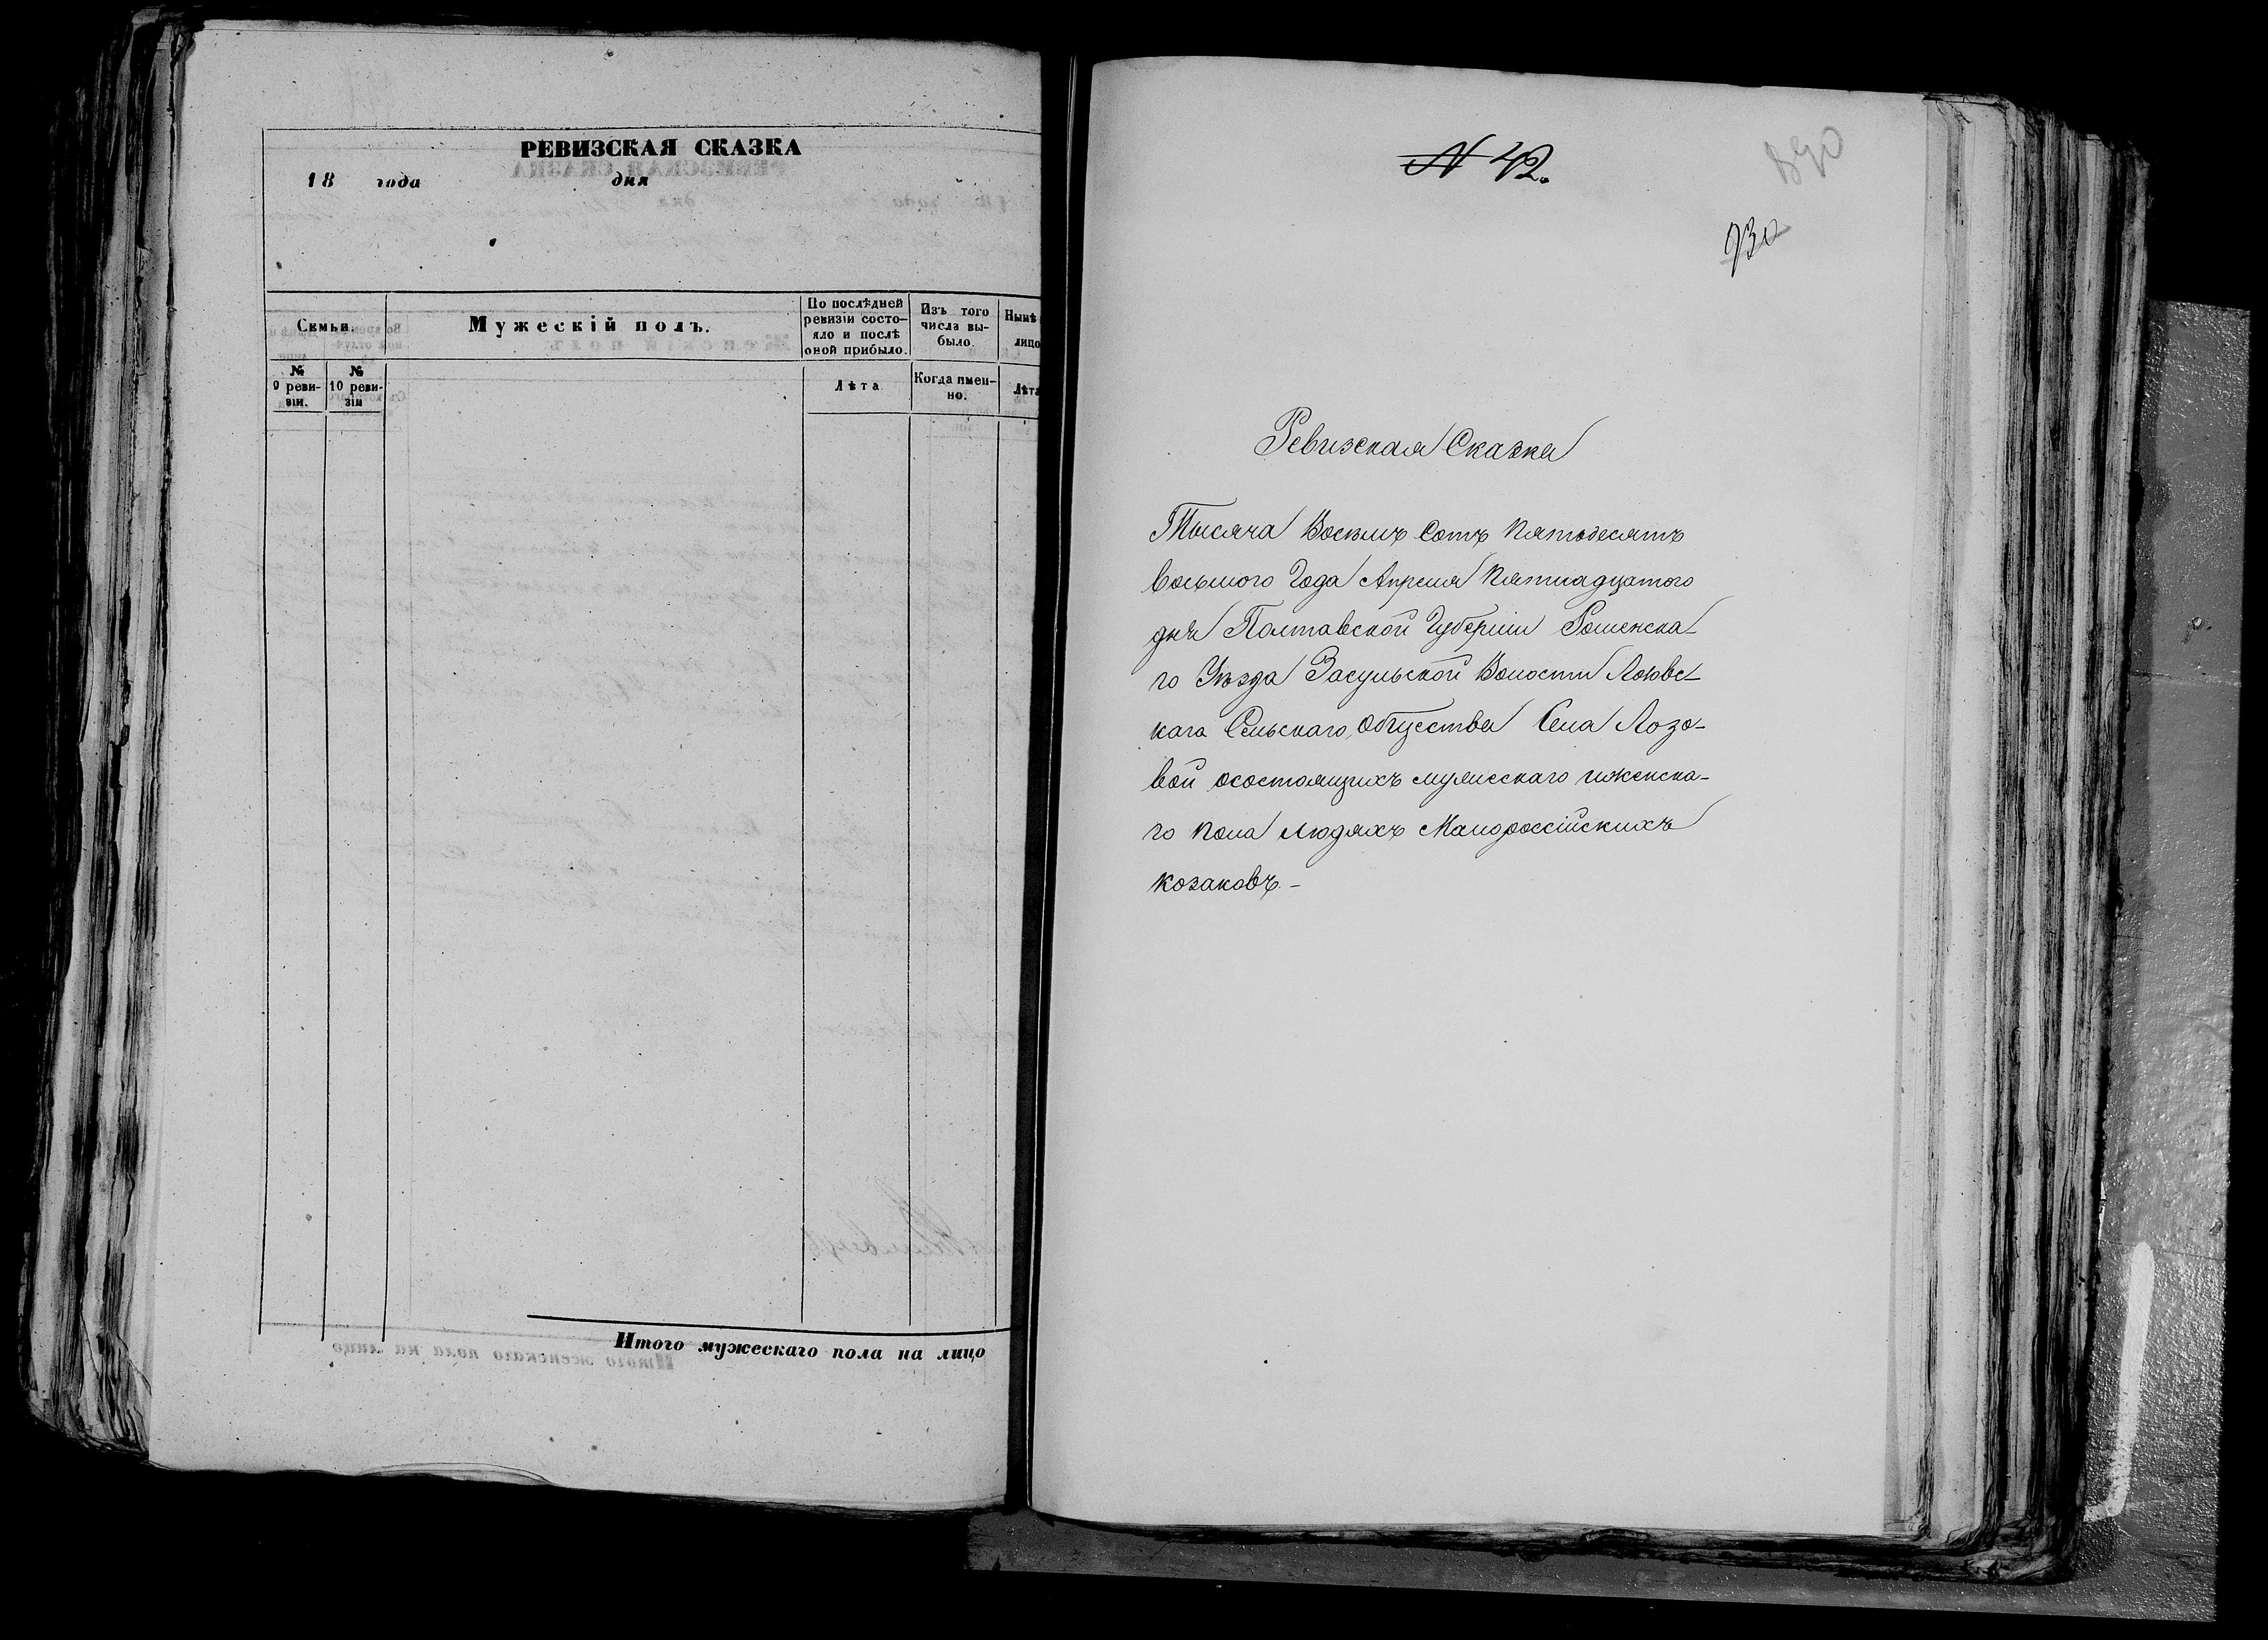 РЕВИЗСКАЯ СКАЗКА
18 года дня
Семьи.
Мужескій полъ.
По послѣдней ревизіи состо-
яло и послѣ оной прибыло.
Изъ того числа вы-
было.
Нынѣ лицо
№ 9 реви-
зіи.
№ 10 реви-
зіи
Лѣта
Когда имен-
но.
Лѣта
Итого мужескаго пола на лицо
N 42.
930
Ревизская Сказка
Тысяча Восемъ Сотъ Пятьдесятъ
восьмого Года Апреля Пятнадцатого
дня Полтавской Губерніи Роменска-
го Уѣзда Засульской Волости
кага Сельскаго Общества Села Лозо-
вой осостоящихъ мужескаго иженска-
го пола людяхъ Малороссійскихъ
козаковъ. -